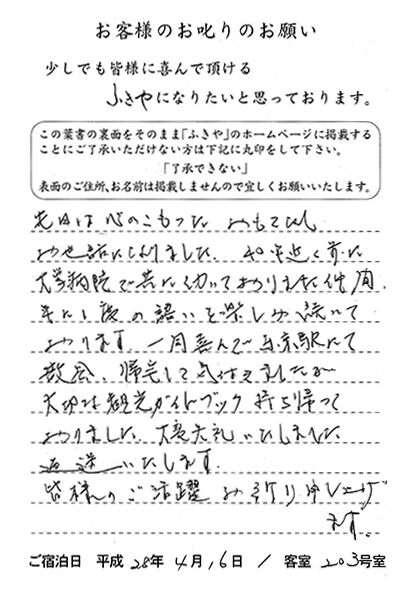 お客様のお叱りのお願い
少しでも皆様に喜んで頂ける
ふきやになりたいと思っております。
この葉書の裏面をそのまま「ふきや」のホームページに掲載する
ことにご了承いただけない方は下記に丸印をして下さい。
「了承できない」
表面のご住所、お名前は掲載しませんので宜しくお願いいたします。
先日は心のこもった おもてなし
お世話になりました。 四十年近く前に
大学病院で共に働いておりました仲間、
年に1度の語いを楽しみ続いて
おります。一同喜んで 東京駅にて
散会、帰宅して気付きましたが
大切な観光ガイドブック 持ち帰って
おりました。大変失礼いたしました
返送いたします。
皆様のご活躍 お祈り申し上げ
ます。
ご宿泊日 平成 28年 4月 16日 / 客室 203号室